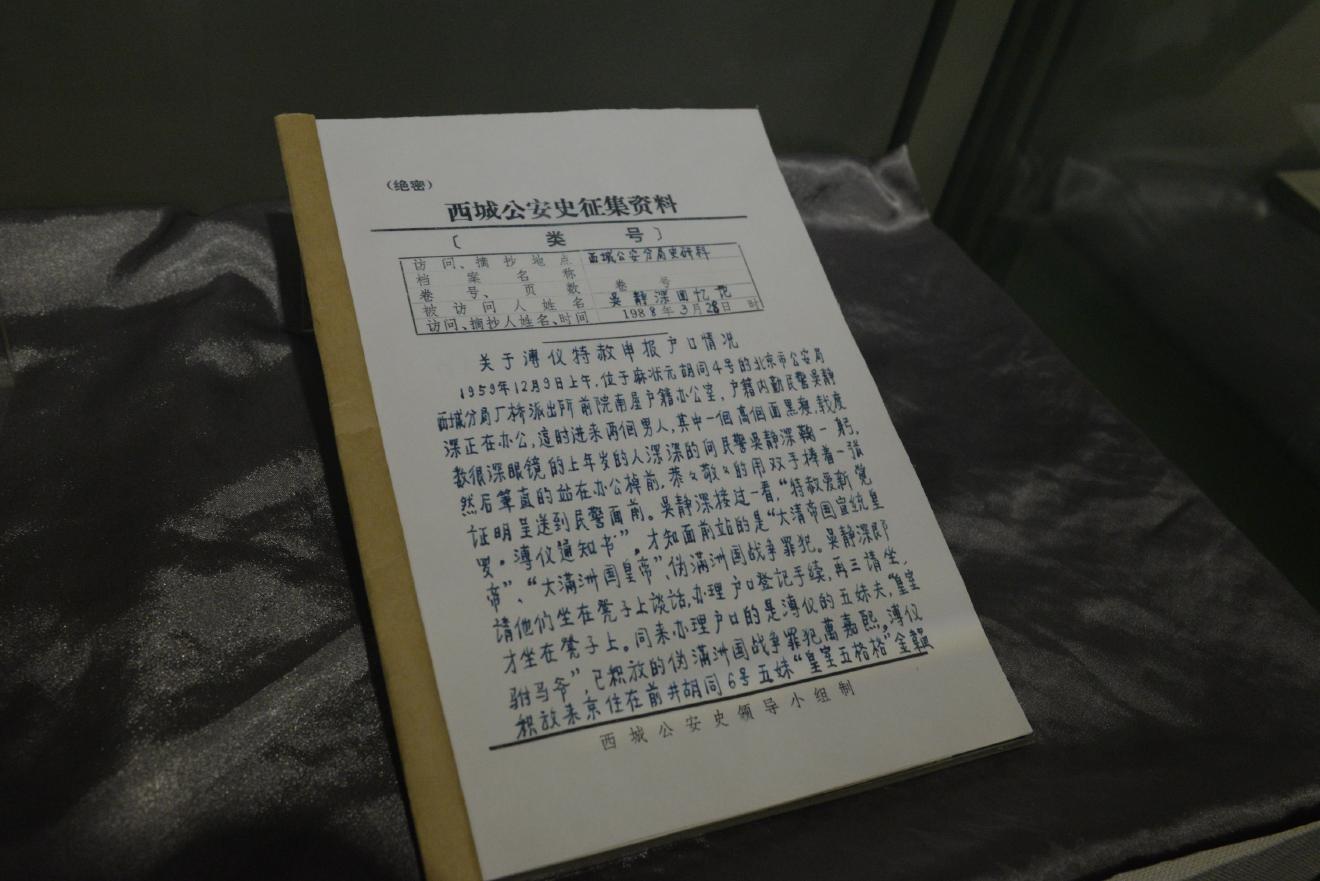 （绝密）
西城公安史征集资料
〔 类 号 〕
访问、摘抄地点 西城公安分局史研科
档案名称
卷号、页数 卷 号
被访问人姓名 吴静深回忆
访问、摘抄人姓名、时间 1988年3月28日 时
关于溥仪特赦申报户口情况
1959年12月9日上午，位于麻状元胡同4号的北京市公安局
西城分局厂桥派出所前院南屋户籍办公室，户籍内勤民警吴静
深正在办公，这时进来两个男人，其中一個高個面黑瘦，戴度
数很深眼镜的上年岁的人深深的向民警吴静深鞠一躬，
然后笔直的站在办公桌前，恭々敬々的用双手捧着一张
证明呈送到民警面前。吴静深接过一看，“特赦爱新觉
罗·溥仪通知书”，才知面前站的是“大清帝国宣统皇
帝”、“大满洲国皇帝”、伪满洲国战争罪犯。吴静深即
请他们坐在凳子上谈话，办理户口登记手续，再三请坐，
才坐在凳子上。同来办理户口的是溥仪的五妹夫，“皇室
驸马爷”，已释放的伪满洲国战争罪犯萬嘉熙。溥仪
释放来京住在前井胡同6号五妹“皇室五格格”金韫
西城公安史领导小组制